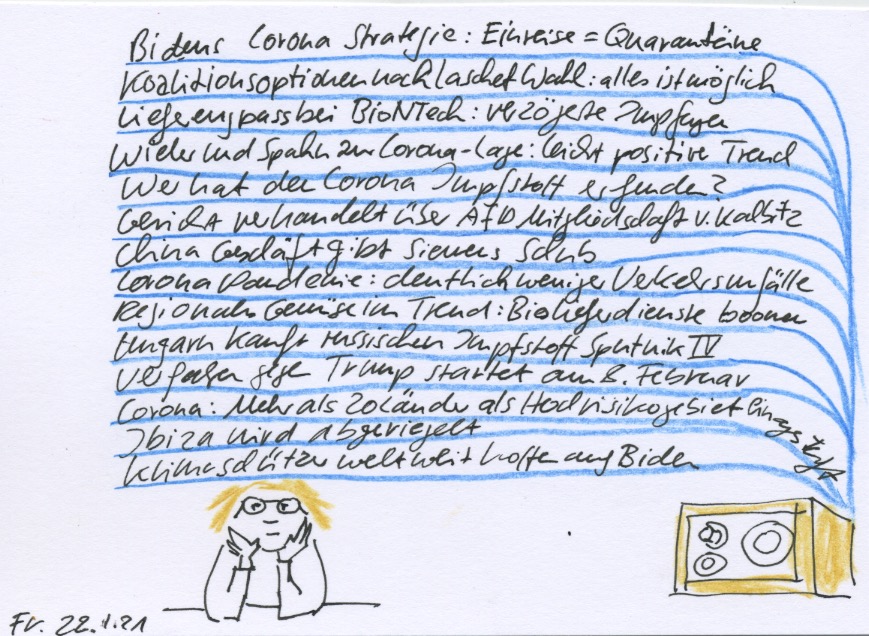 Bidens Corona Strategie: Einreise = Quarantäne
Koalitionsoptionen nach Laschet Wahl: alles ist möglich
Lieferengpass bei BioNTech: verzögerte Impfungen
Wieler und Spahn zur Corona-Lage: leicht positive Trend
Wer hat den Corona Impfstoff erfunden?
Gericht verhandelt über AfD Mitgliedschaft v. Kalbitz
China Geschäft gibt Siemens Schub
Corona Pandemie: deutlich weniger Verkehrsunfälle
Regionales Gemüse im Trend: Biolieferdienste boomen
Ungarn kauft russischen Impfstoff Sputnik IV
Verfahren gegen Trump startet am 8. Februar
Corona: Mehr als 20 Länder als Hochrisikogebiet eingestuft
Ibiza wird abgeriegelt
Klimaschützer weltweit hoffen auf Biden
Fr. 22.1.21